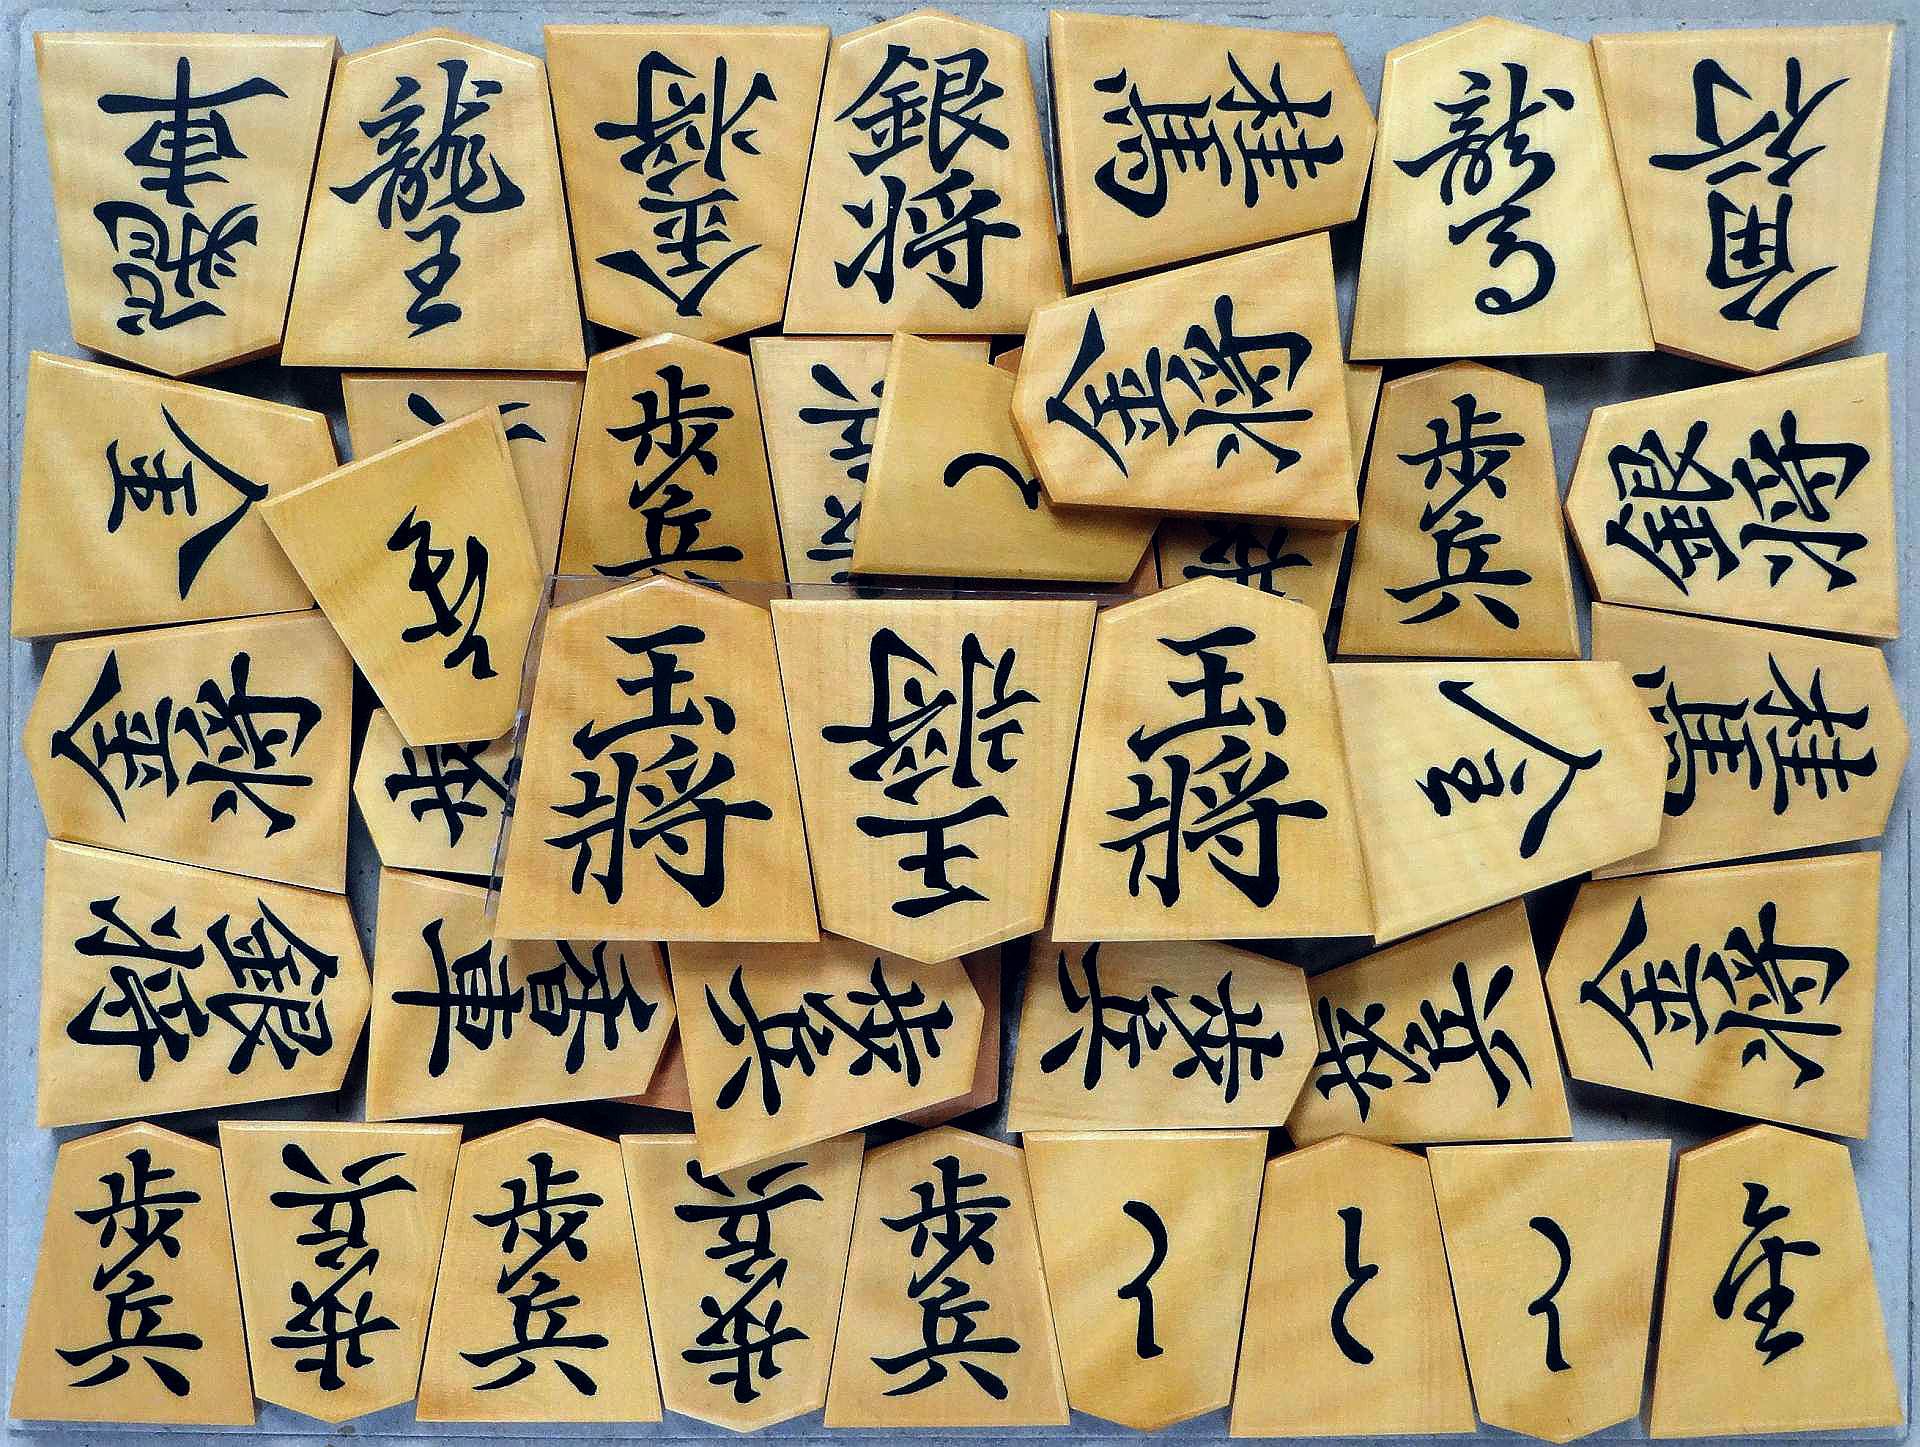 飛車
龍王
金将
銀将
桂馬
龍馬
角行
金
歩兵
歩兵
と
金将
歩兵
銀将
金将
歩
玉将
王将
玉将
桂馬
銀将
香車
歩兵
歩兵
歩兵
金将
歩兵
歩兵
歩兵
歩兵
歩兵
と
と
と